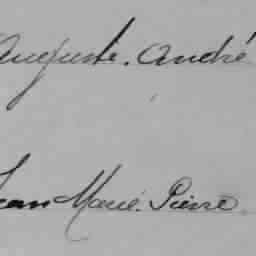 Auguste. André
Jean Marie. Pierre.